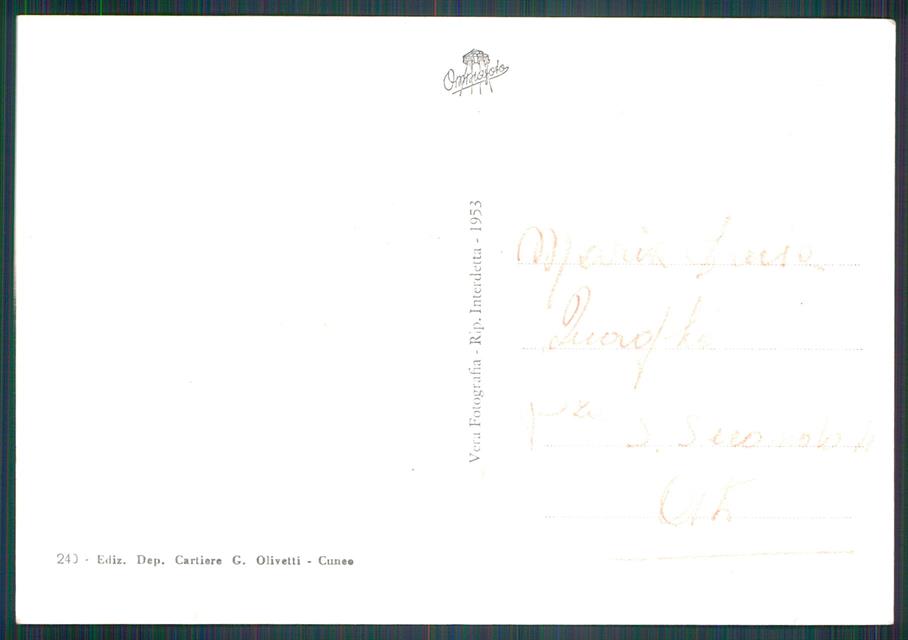 Omniafoto
Vera Fotografia - Rip. Interdetta - 1953
Maria Luisa
S. Secondo
Asti
240 - Ediz. Dep. Cartiere G. Olivetti - Cuneo